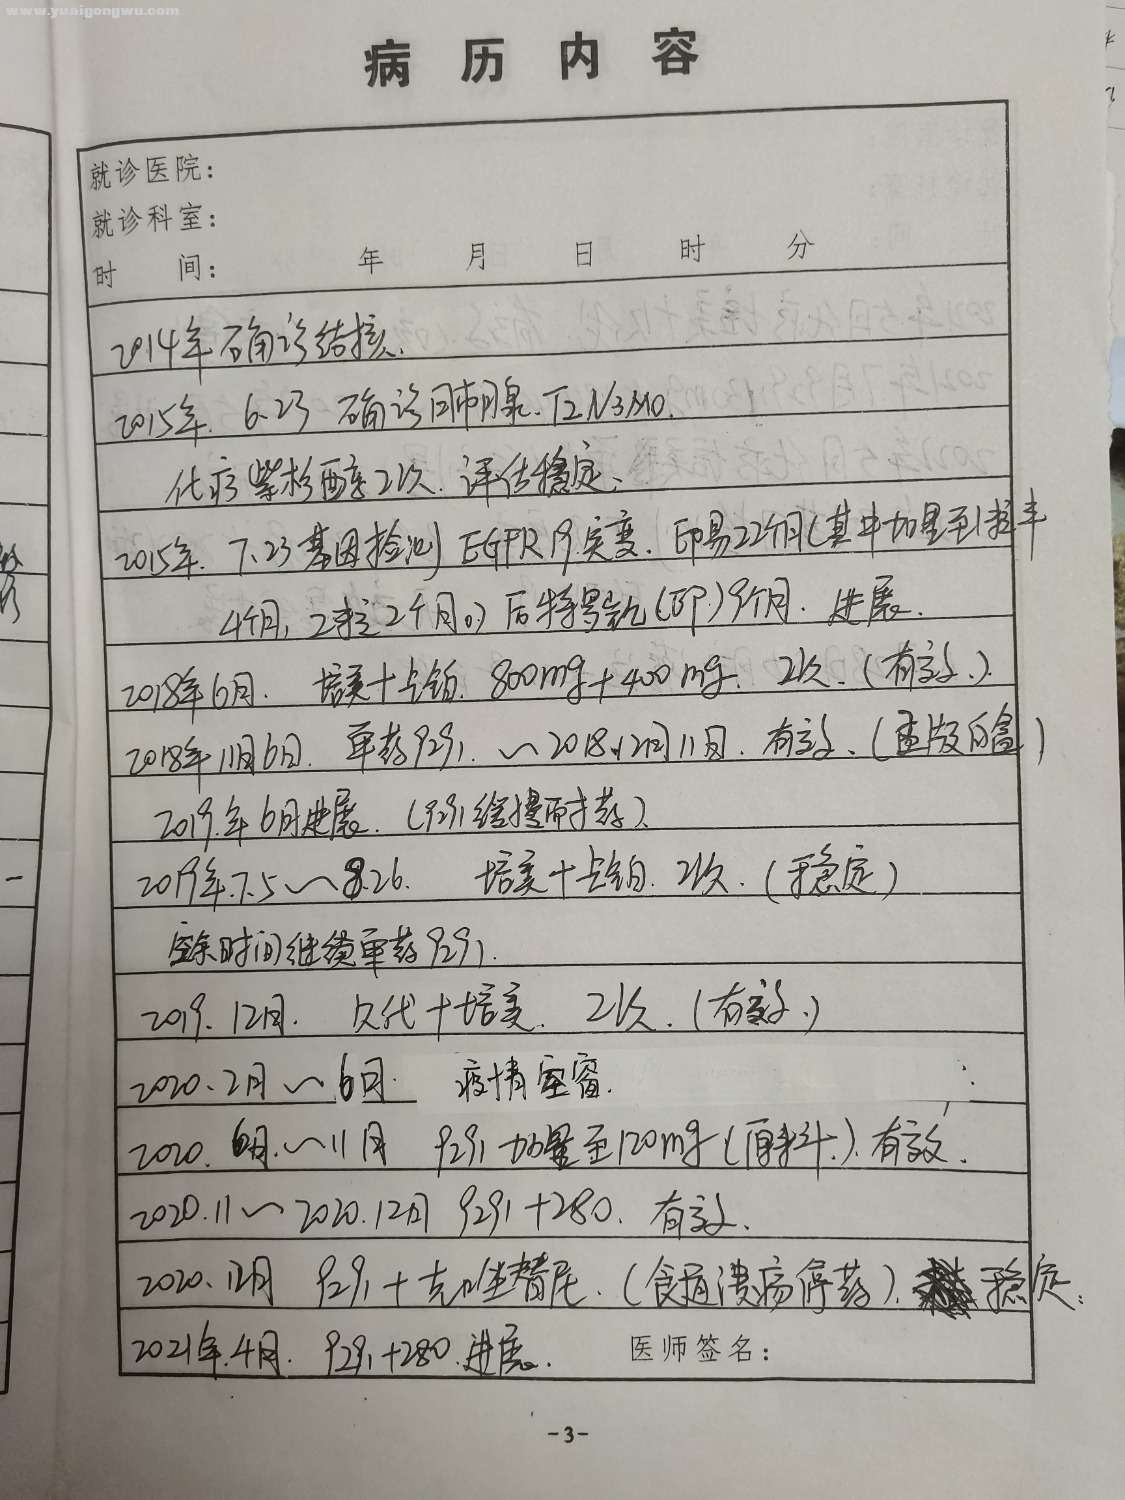 www.yuaigongwu.com
病历内容
就诊医院：
就诊科室：
时 间： 年 月 日 时 分
2014年确诊结核.
2015年. 6.23 确诊肺腺. T2N3M0.
化疗紫杉醇2次. 评估稳定.
2015年. 7.23基因检测 EGFR 19突变. 印易22个月(其中加量至1粒半
4个月, 2粒2个月。) 后特罗凯(印.) 9个月. 进展.
2018年6月. 培美+卡铂. 800mg+400mg. 2次. (有效.).
2018年11月6日. 单药9291. ～2018.12月11日. 有效. (孟版白盒)
2019.年6月进展. (9291继续耐药).
2019年.7.5～8.26. 培美+卡铂. 2次. (稳定)
空余时间继续单药9291.
2019. 12月. 贝伐+培美. 2次. (有效.)
2020.2月～6月. 疫情空窗.
2020. 6月. ～11月 9291加量至120mg (原料.). 有效.
2020.11～2020.12月 9291+280. 有效.
2020.12月 9291+克唑替尼. (食道溃疡停药). 稳定.
2021年.4月. 9291+280.进展. 医师签名：
-3-